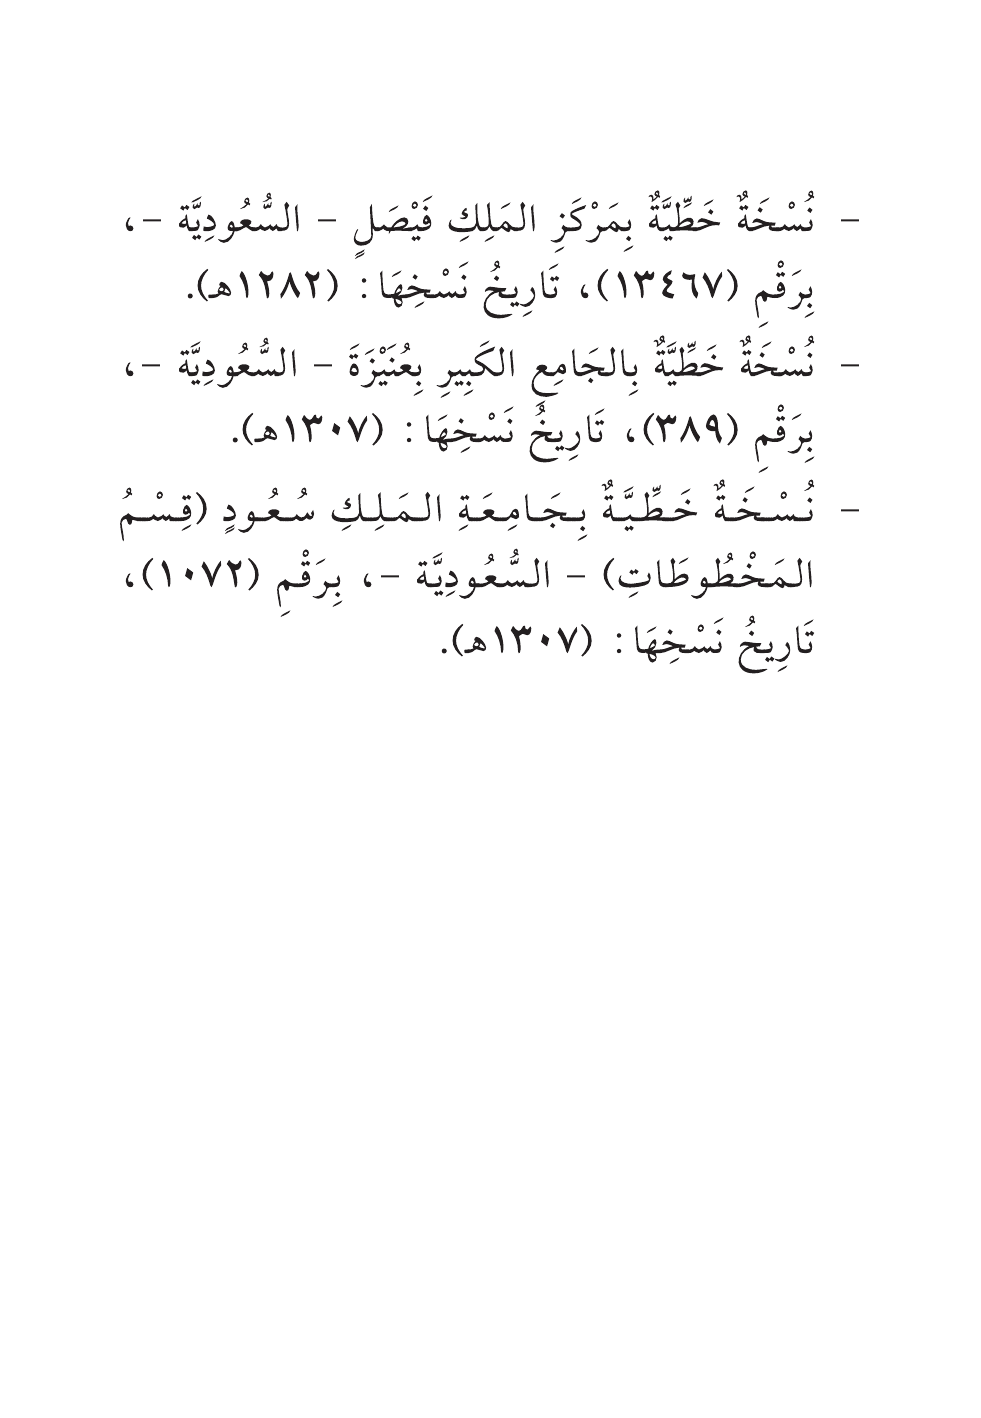 - نُسْخَةٌ خَطِّيَّةٌ بِمَرْكَزِ المَلِكِ فَيْصَلٍ - السُّعُودِيَّة -،
بِرَقْمِ (١٣٤٦٧)، تَارِيخُ نَسْخِهَا: (١٢٨٢هـ).
- نُسْخَةٌ خَطِّيَّةٌ بِالجَامِعِ الكَبِيرِ بِعُنَيْزَةَ - السُّعُودِيَّة -،
بِرَقْمِ (٣٨٩)، تَارِيخُ نَسْخِهَا: (١٣٠٧هـ).
- نُسْخَةٌ خَطِّيَّةٌ بِجَامِعَةِ المَلِكِ سُعُودٍ (قِسْمُ
المَخْطُوطَاتِ) - السُّعُودِيَّة -، بِرَقْمِ (١٠٧٢)،
تَارِيخُ نَسْخِهَا: (١٣٠٧هـ).